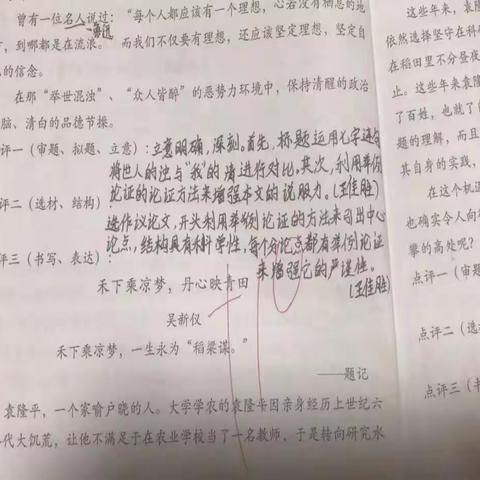 曾有一位名人说过:“每个人都应该有一个理想,心若没有栖息的地
,到哪都是在流浪。 而我们不仅要有理想,还应该坚定理想,坚定自
的信念。
在那“举世混浊”、“众人皆醉”的恶势力环境中,保持清醒的政治
脑、清白的品德节操。
评一(审题、拟题、立意):立意明确,深刻。首先,标题运用七字
将世人的浊与“我”的清进行对比,其次,利用举例
论证的论证方法来增强本文的说服力。(王佳胜)
评二(选材、结构):
选作议论文,开头利用举例论证的方法来引出中心
论点,结构具有科学性,每个分论点都有举例论证
来增强它的严谨性。
(王佳胜)
评三(书写、表达):
禾下乘凉梦,丹心映青田
吴新仪
禾下乘凉梦,一生永为“稻粱谋。”
——题记
袁隆平,一个家喻户晓的人。大学学农的袁隆平因亲身经历上世纪六
代大饥荒,让他不满足于在农业学校当了一名教师,于是转向研究水
这些年来,袁
依然选择坚守在科研
在稻田里不分昼夜
止。这些年来袁隆
了百姓,也就了
题的理解,而且
其自身的实践,
在这个机遇
也确实令人向往
攀的高处呢?
点评一(审题
点评二(选
点评三(书